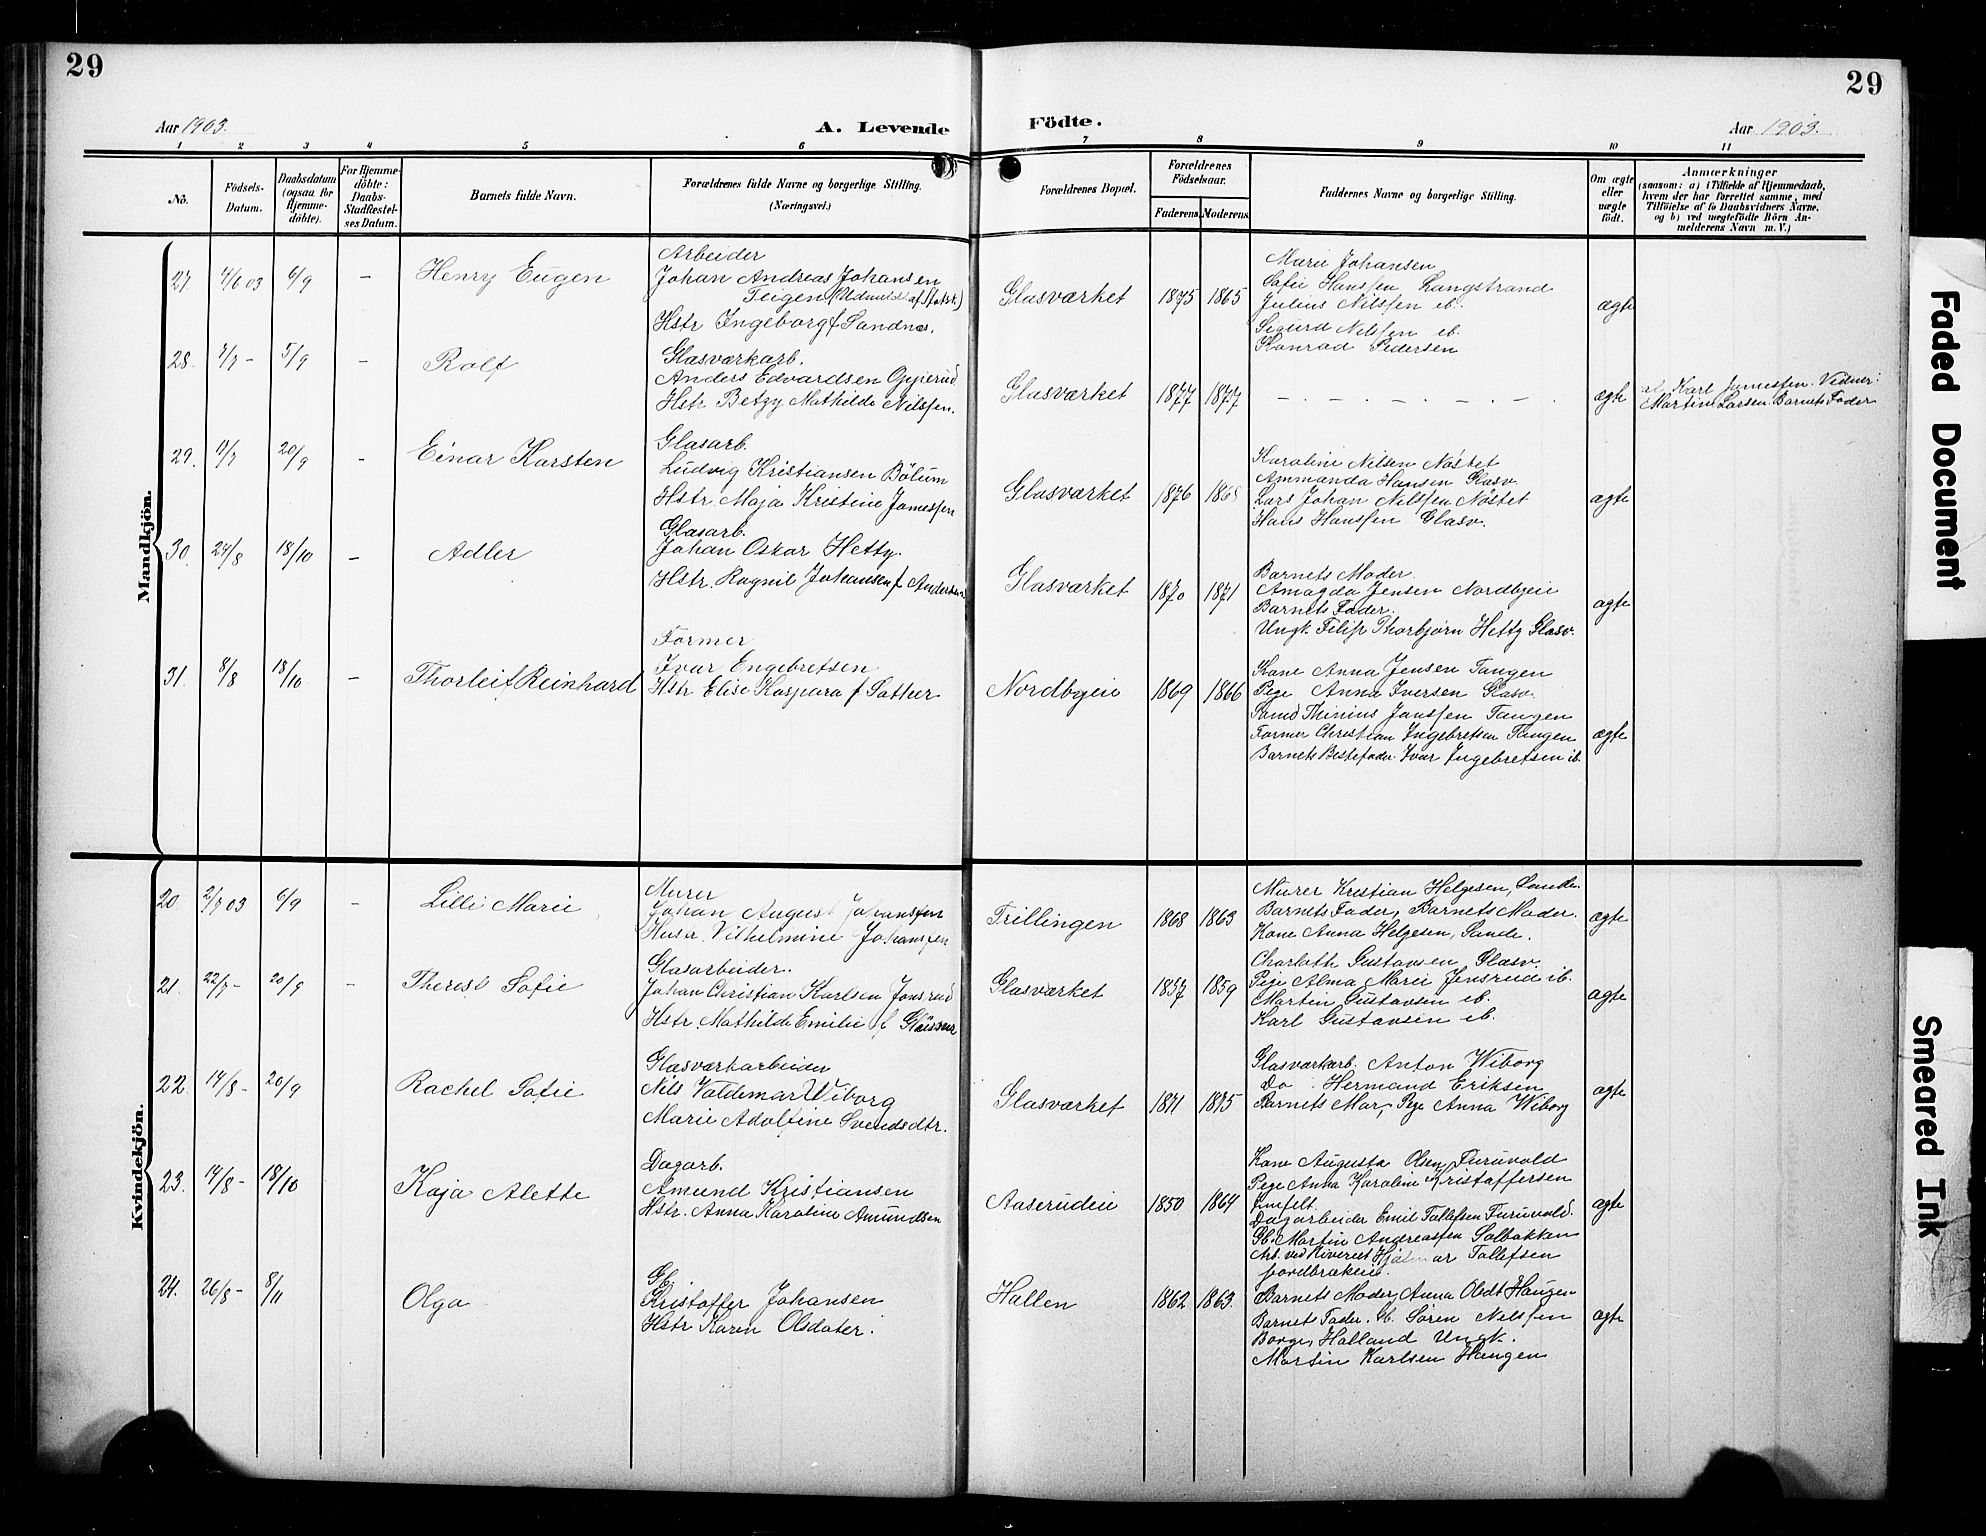 29
29
Aar 1903.
A. Levende
Födte.
Aar 1903.
1 2 3 4 5 6 7 8 9 10 11
No.
Födsels-
Datum.
Daabsdatum
(ogsaa for
Hjemme-
döbte).
For Hjemme-
döbte:
Daabs-
Stadfæstel-
ses Datum.
Barnets fulde Navn.
Forældrenes fulde Navne og borgerlige Stilling.
(Næringsvei.)
Forældrenes Bopæl.
Forældrenes
Födselsaar.
Faderens. Moderens.
Faddernes Navne og borgerlige Stilling.
Om ægte
eller
uægte
födt.
Anmærkninger
(saasom: a) i Tilfælde af Hjemmedaab,
hvem der har forrettet samme, med
Tilföielse af to Daabsvidners Navne,
og b) ved uægtefödte Börn An-
melderens Navn m. V.)
Mandkjön.
27 4/6 03 6/9 – Henry Eugen
Arbeider
Johan Andreas Johansen
Teigen (Udmeldt af Statsk.)
Hstr Ingeborg f Sandnes.
Glasværket 1875 1865
Marie Johansen
Sofie Hanssen Langstrand
Julius Nilssen ib.
Sigurd Nilssen ib.
Konrad Pedersen
ægte
28. 4/7 – 5/9 – Rolf
Glasværkarb.
Anders Edvardsen Oppierud
Hstr Betzy Mathilde Nilssen.
Glasværket 1877 1877
– – – – – –
ægte
Karl Jamessen. Vidner:
Martin Larsen. Barnets Fader
29. 11/7 20/9 – Einar Karsten
Glasarb.
Ludvig Kristiansen Bölum
Hstr. Maja Kristine Jamessen
Glasværket 1876
Karoline Nilsen Nöstet
Ammanda Hansen Glasv.
Lars Johan Nilssen Nöstet
Hans Hanssen Glasv.
ægte
30. 24/8 18/10 – Adler
Glasarb.
Johan Oskar Hetty.
Hstr. Ragnil Johansen f Andersen
Glasværket 1870 1871
Barnets Moder.
Amagda Jensen Nordbyeie
Barnets Fader.
Ungk. Filip Thorbjörn Hetty Glasv.
ægte
31. 8/8 18/10 – Thorleif Reinhard
Former
Ivar Engebretsen
Hstr Elise Kaspara f Sather
Nordbyeie 1869 1866
Kone Anna Jensen Tangen
Pige Anna Iversen Glasv.
Samd Thinius Janssen Tangen
Former Christian Ingebretsen Tangen
Barnets Bestefader Ivar Ingebretsen ib.
ægte
Kvindekjön.
20 2/7 03 6/9 – Lilli Marie
Murer
Johan August Johanssen
Husr. Vilhelmine Johanssen
Trillingen 1868 1863
Murer Kristian Helgesen, Sande.
Barnets Fader, Barnets Moder.
Kone Anna Helgesen, Sande.
ægte
21. 22/7 – 20/9 – Therese Sofie
Glasarbeider.
Johan Christian Karlsen Jonsrud
Hstr. Mathilde Emilie f
Glasværket 1857 1859
Charloth Gustavsen, Glasv.
Pige Alma Marie Jensrud ib.
Martin Gustavsen ib.
Karl Gustavsen ib.
ægte
22. 14/8 – 20/9 Rachel Sofie
Glasværkarbeider
Nils Valdemar Wiborg
Marie Adolfine Svendsdtr.
Glasværket 1871 1875
Glasværkarb. Anton Wiborg
Do Hermand Eriksen
Barnets Mor, Pige Anna Wiborg
ægte
23. 14/8 – 18/10 Kaja Alette
Dagarb.
Amund Kristiansen
Hstr. Anna Karoline Amundsen
Aaserudeie 1850 1864
Kone Augusta Olsen, Furuvold
Pige Anna Karoline Kristoffersen
Dagarbeider Emil Tollefsen Furuvold.
Gb. Martin Andreassen Solbakken
Arb. ved Riveriet Hjalmar Tollefsen
ægte
24. 26/8 – 8/11 Olga
Gb.
Kristoffer Johansen
Hstr Karen Olsdater.
Hallen 1862 1863.
Barnets Moder, Anna Olsdt Haugen
Barnets Fader. Gb. Sören Nilssen
Borge, Halland Ungk.
Martin Karlsen Haugen
ægte
Faded Document
Smeared Ink